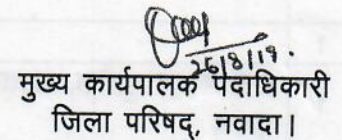 26/8/19.
मुख्य कार्यपालक पदाधिकारी
जिला परिषद्, नवादा।